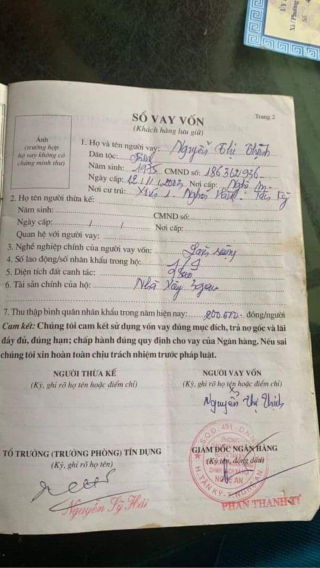 SỔ VAY VỐN
Trang 2
(Khách hàng lưu giữ)
Ảnh
(trường hợp
hộ vay không có
chứng minh thư)
1. Họ và tên người vay: Nguyễn Thị Thịnh
Dân tộc:
Năm sinh: 1975 CMND số: 186312956
Ngày cấp: Nơi cấp: Nghệ An
Nơi cư trú: Xóm 1. Nghĩa
2. Họ tên người thừa kế:
Năm sinh: CMND số:
Ngày cấp: / / Nơi cấp:
Quan hệ với người vay:
3. Nghề nghiệp chính của người vay vốn: Làm ruộng
4. Số lao động/số nhân khẩu trong hộ:
5. Diện tích đất canh tác:
6. Tài sản chính của hộ: Nhà Xây
7. Thu thập bình quân nhân khẩu trong năm hiện nay: đồng/người
Cam kết: Chúng tôi cam kết sử dụng vốn vay đúng mục đích, trả nợ gốc và lãi
đầy đủ, đúng hạn; chấp hành đúng quy định cho vay của Ngân hàng. Nếu sai
chúng tôi xin hoàn toàn chịu trách nhiệm trước pháp luật.
NGƯỜI THỪA KẾ
(Ký, ghi rõ họ tên hoặc điểm chỉ)
NGƯỜI VAY VỐN
(Ký, ghi rõ họ tên hoặc điểm chỉ)
Nguyễn Thị Thịnh
TỔ TRƯỞNG (TRƯỞNG PHÒNG) TÍN DỤNG
(Ký, ghi rõ họ tên)
Nguyễn Sỹ Hải
GIÁM ĐỐC NGÂN HÀNG
(Ký tên, đóng dấu)
PHAN THANH